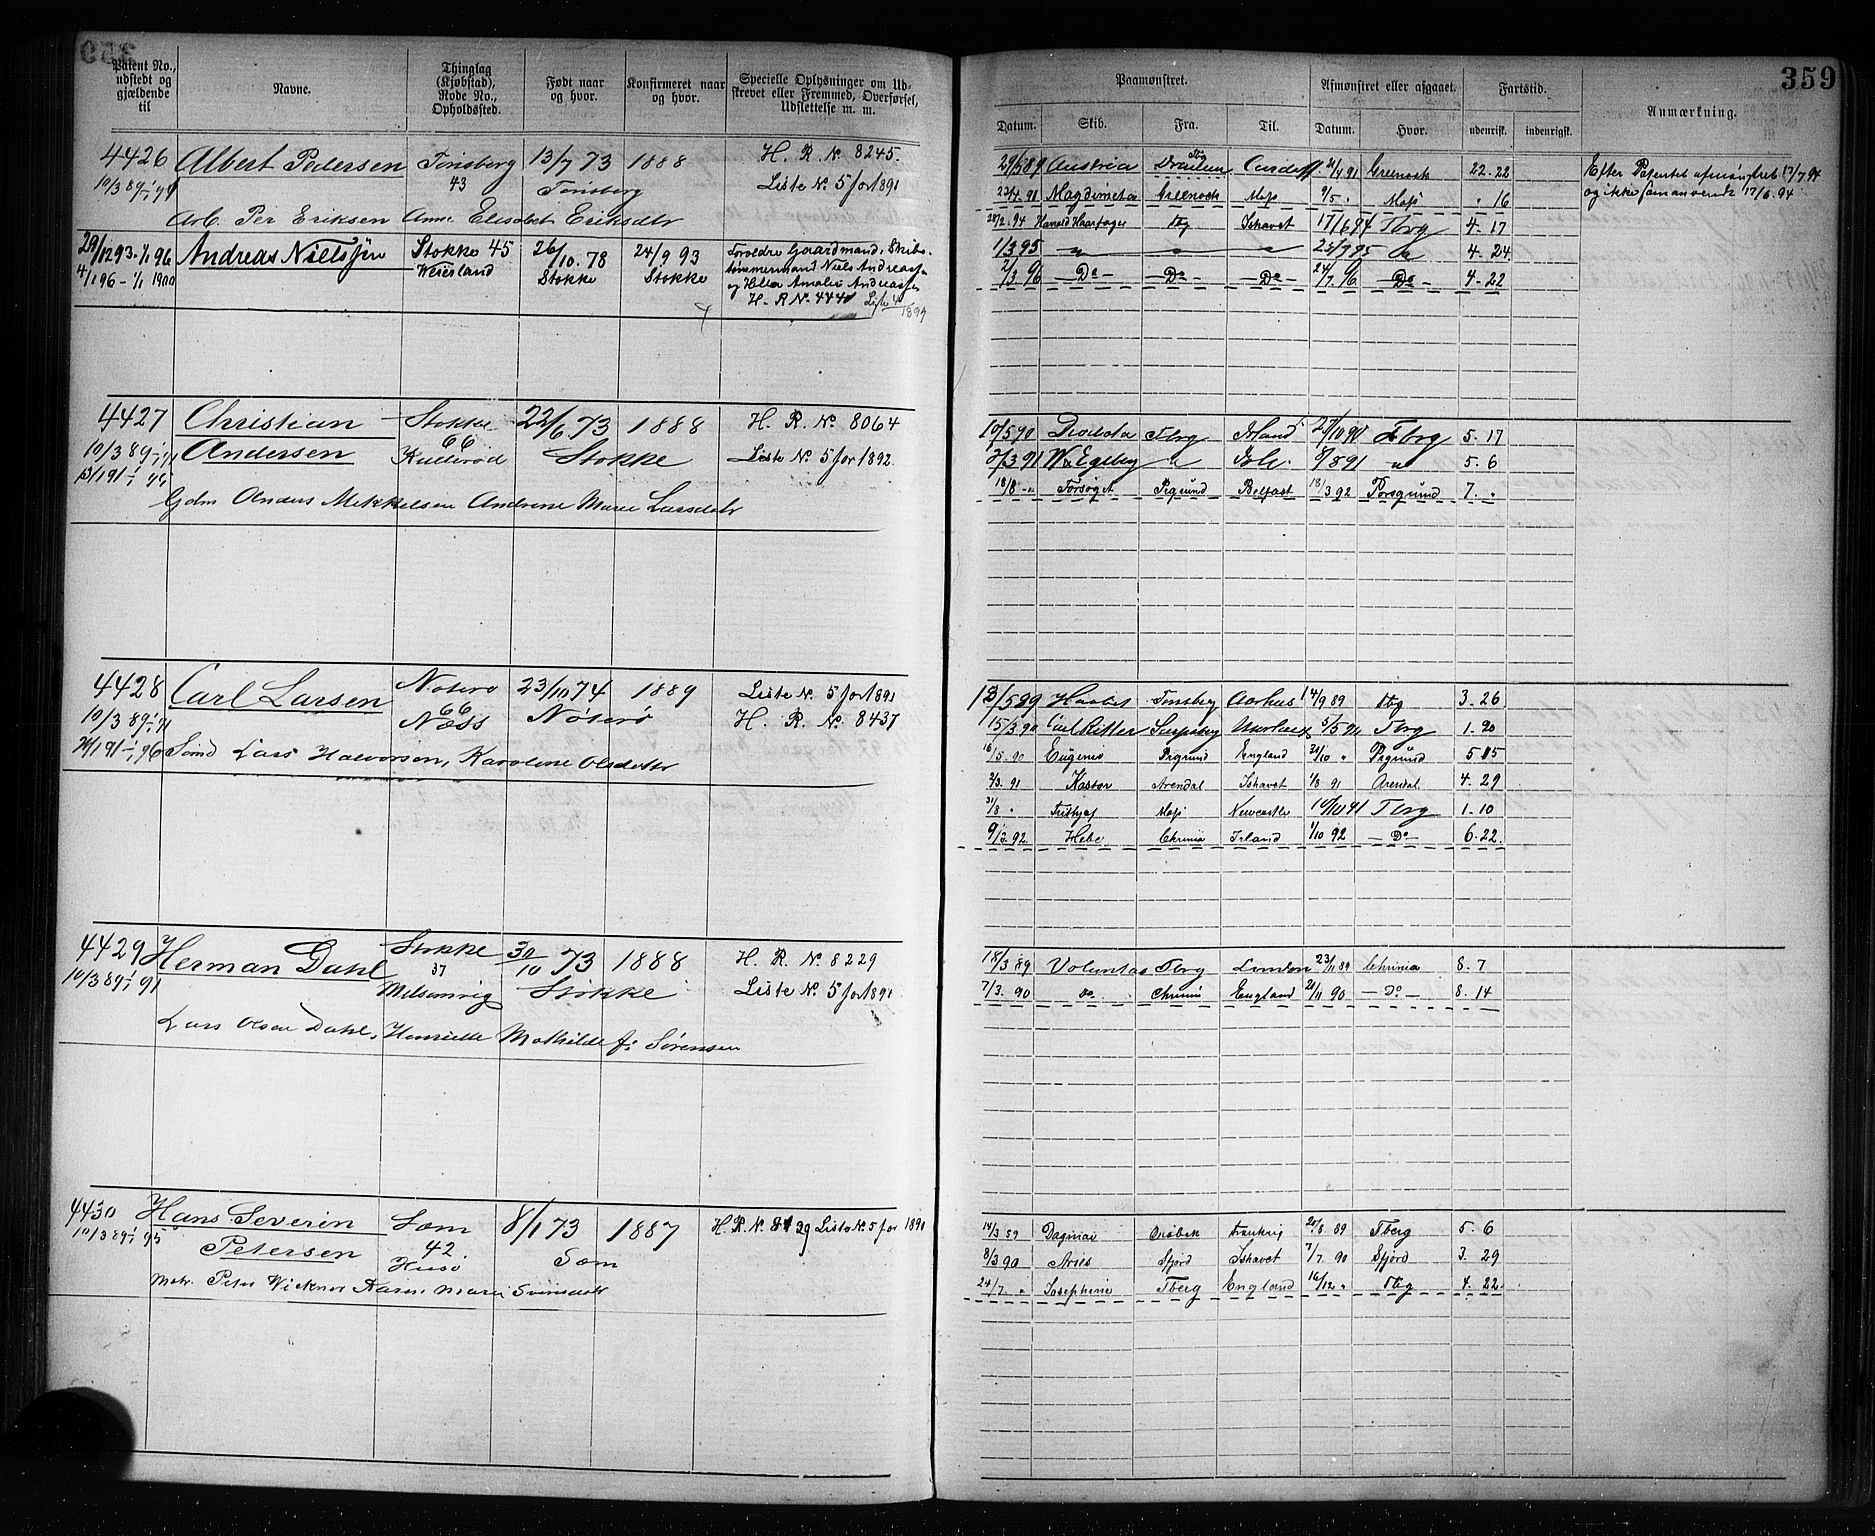 359
Patent No., udstedt og gjældende til
Navne.
Thinglag (Kjøbstad), Rode No., Opholdssted.
Født naar og hvor.
Konfirmeret naar og hvor.
Specielle Oplysninger om Udskrevet eller Fremmed, Overførsel, Udslettelse m. m.
Paamønstret.
Afmønstret eller afgaaet.
Fartstid.
Anmærkning.
Datum. Skib. Fra. Til. Datum. Hvor. udenrigsk. indenrigsk.
4426 Albert Pedersen Tønsberg 13/7 73 1888 H. R. No 8245.
10/3 89-1/1 91 43 Tønsberg Liste No 5 for 1891
Arb. Per Eriksen Anne Elisabet Eriksdtr
29/12 93-1/1 96 Andreas Nielssen Stokke 45 26/10. 78 24/9 93 Forældre Gaardmand, Skibs-
4/1 96 - 1/1 1900 Stokke Stokke tømmermand Niels Andreass.
og Amalie Andreass.
H. R No 444 Liste 4 1899
29/3 89 Austria Cardiff 21/4 91 Greenock 22-22
23/4. 91 Greenock Moss 9/5 Moss " 16
28/2. 94 Harald Haarfager Tbg Ishavet 17/6 94 Tbrg 4-17
1/3 95 " 23/7 95 " 4-24
2/3. 96 - Do - - Do - - Do - 24/7. 96 - Do - 4-22
Efter Patentet afmønstret 17/7 94
og ikke senere anvendt 17/6. 94
4427 Christian Stokke 22/6 73 1888 H. R. No 8064
10/3 89-1/1 91 Andersen 66 Stokke Liste No 5 for 1892.
Gdm Anders Mikkelsen Andrine Marie Larsdatr
10/5 90 Tbrg Island 21/10 90 Tbrg 5. 17
3/3 91 " 8/8 91 " 5. 6
18/8 - Forsøget Prgrund Belfast 18/3 92 Porsgrund 7. "
4428 Carl Larsen Nøterø 23/10 74 1889 Liste No 5 for 1891
10/3 89-1/1 91 66 Næss Nøterø H. R. No 8437
Lars Halvorsen, Karoline Olsdatr
13/5 89 Haabet Tønsberg Aarhus 14/9 89 Tbg 3. 26
15/3 90 Carl Ritter Sarpsbg 5/5 90 Tbrg 1. 20
16/5. 90 Eugenie Prgrund England 21/10 " Prgrund 5 15
2/3. 91 Kastor Arendal Ishavet 1/8 91 Arendal 4. 29
31/8 " Frithjof Moss Newcastle 10/10 91 Tbrg 1. 10
9/3. 92 Hebe Chrania Irland 1/10 92 - Do - 6. 22
4429 Herman Dahl Stokke 30/10 73 1888 H. R. No. 8229
10/3 89-1/1 91 37 Melsomvig Stokke Liste No. 5 for 1891
Lars Olsen Dahl, Henriette Mathilde f: Sørensen
18/3 89 Voluntas Tbrg London 23/11 89 Chrania 8. 7
7/3. 90 do Chrania England 21/11 90 - Do - 8. 14
4430 Hans Severin Sæm 8/1 73 1887 H. R. N. Liste No. 5 for 1891
10/3 89-1/1 95 Petersen 42. Husø Sæm
Matr. Peter Karen Marie
14/3 89 Dagmar Frankrig 20/8. 89 Tberg 5. 6
8/3 90 Aries Sfjord Ishavet 7/7. 90 Sfjord 3. 29
24/7. " Josephine Tberg England 16/12 " Tbg 4. 22